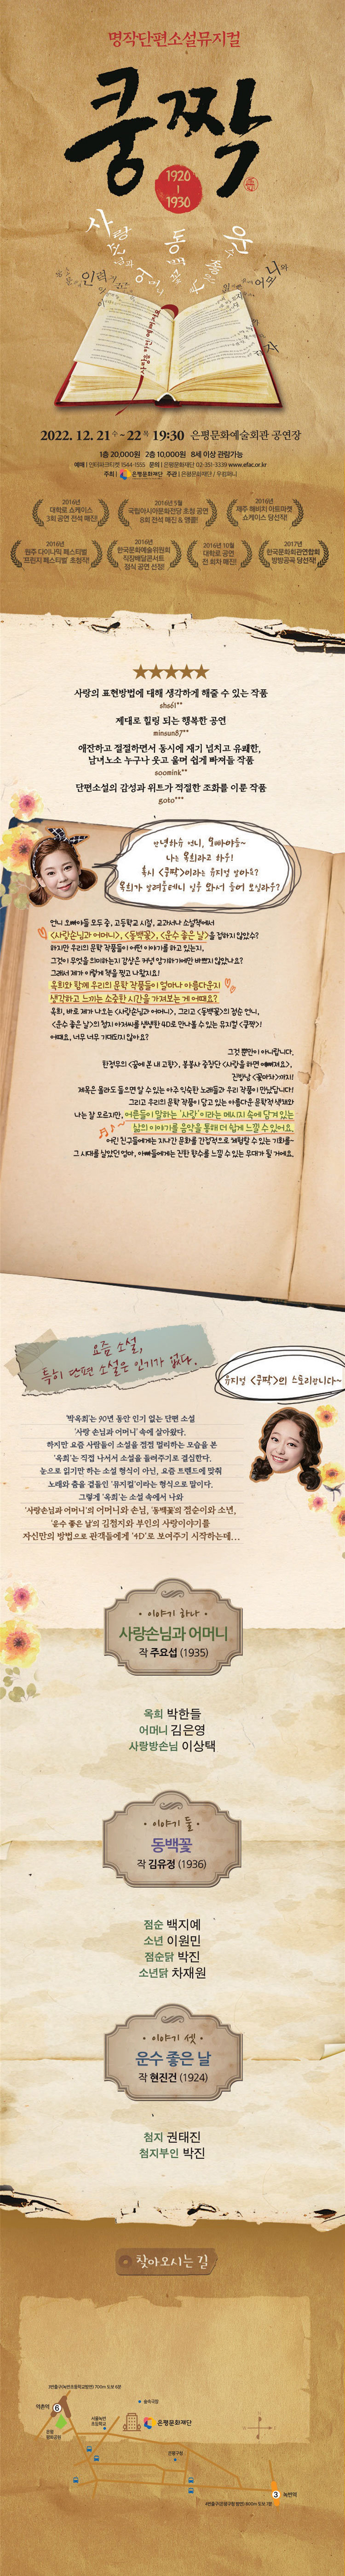 명작단편소설뮤지컬
쿵짝
1920
1930
사랑
동백
운
인력
어머니와
사랑을 하면 예뻐져요
2022. 12. 21수 ~ 22목 19:30 은평문화예술회관 공연장
1층 20,000원 2층 10,000원 8세 이상 관람가능
예매 | 인터파크티켓 1544-1555 문의 | 은평문화재단 02-351-3339 www.efac.or.kr
주최 | 은평문화재단 주관 | 은평문화재단 / 우컴퍼니
2016년
대학로 쇼케이스
3회 공연 전석 매진!
2016년 5월
국립아시아문화전당 초청 공연
8회 전석 매진 & 앵콜!
2016년
제주 해비치 아트마켓
쇼케이스 당선작!
2016년
원주 다이나믹 페스티벌
'프린지 페스티벌' 초청작!
2016년
한국문화예술위원회
직장배달콘서트
정식 공연 선정!
2016년 10월
대학로 공연
전 회차 매진!
2017년
한국문화회관연합회
방방곡곡 당선작!
★★★★★
사랑의 표현방법에 대해 생각하게 해줄 수 있는 작품
shs61**
제대로 힐링 되는 행복한 공연
minsun87**
애잔하고 절절하면서 동시에 재기 넘치고 유쾌한,
남녀노소 누구나 웃고 울며 쉽게 빠져들 작품
soomink**
단편소설의 감성과 위트가 적절한 조화를 이룬 작품
goto***
안녕하슈 언니, 오빠야들~
나는 옥희라고 하우!
혹시 <쿵짝>이라는 뮤지컬 알아요?
옥희가 알려줄테니 일루 와서 들어 보일라우?
언니 오빠야들 모두 중, 고등학교 시절, 교과서나 소설책에서
<사랑손님과 어머니>, <동백꽃>, <운수 좋은 날>을 접하지 않았수?
하지만 우리의 문학 작품들이 어떤 이야기를 하고 있는지,
그것이 무엇을 의미하는지 감상은 커녕 암기하기에만 바쁘지 않았나요?
그래서 제가 이렇게 책을 찢고 나왔지요!
옥희와 함께 우리의 문학 작품들이 얼마나 아름다운지
생각하고 느끼는 소중한 시간을 가져보는 게 어때요?
옥희, 바로 제가 나오는 <사랑손님과 어머니>, 그리고 <동백꽃>의 점순 언니,
<운수 좋은 날>의 첨지 아저씨를 생생한 4D로 만나볼 수 있는 뮤지컬 <쿵짝>!
어때요, 너무 너무 기대되지 않아요?
그것 뿐만이 아니랍니다.
한정무의 <꿈에 본 내 고향>, 봉봉사 중창단 <사랑을 하면 예뻐져요>,
진방남 <꽃마차>까지!
제목은 몰라도 들으면 알 수 있는 아주 익숙한 노래들과 우리 작품이 만났답니다!
그리고 우리의 문학 작품이 담고 있는 아름다운 문학적 색채와
나는 잘 모르지만, 어른들이 말하는 '사랑'이라는 메시지 속에 담겨 있는
삶의 이야기를 음악을 통해 더 쉽게 느낄 수 있어요.
어린 친구들에게는 지나간 문화를 간접적으로 체험할 수 있는 기회를-
그 시대를 살았던 엄마, 아빠들에게는 진한 향수를 느낄 수 있는 무대가 될 거에요.
요즘 소설,
특히 단편 소설은 인기가 없다.
뮤지컬 <쿵짝>의 스토리랍니다~
'박옥희'는 90년 동안 인기 없는 단편 소설
'사랑 손님과 어머니' 속에 살아왔다.
하지만 요즘 사람들이 소설을 점점 멀리하는 모습을 본
'옥희'는 직접 나서서 소설을 들려주기로 결심한다.
눈으로 읽기만 하는 소설 형식이 아닌, 요즘 트렌드에 맞춰
노래와 춤을 곁들인 '뮤지컬'이라는 형식으로 말이다.
그렇게 '옥희'는 소설 속에서 나와
'사랑손님과 어머니'의 어머니와 손님, '동백꽃'의 점순이와 소년,
'운수 좋은 날'의 김첨지와 부인의 사랑이야기를
자신만의 방법으로 관객들에게 '4D'로 보여주기 시작하는데...
• 이야기 하나 •
사랑손님과 어머니
작 주요섭 (1935)
옥희 박한들
어머니 김은영
사랑방손님 이상택
• 이야기 둘 •
동백꽃
작 김유정 (1936)
점순 백지예
소년 이원민
점순닭 박진
소년닭 차재원
• 이야기 셋 •
운수 좋은 날
작 현진건 (1924)
첨지 권태진
첨지부인 박진
찾아오시는 길
역촌역
6
은평
평화공원
서울녹번
초등학교
숲속극장
은평문화재단
은평구청
3
녹번역